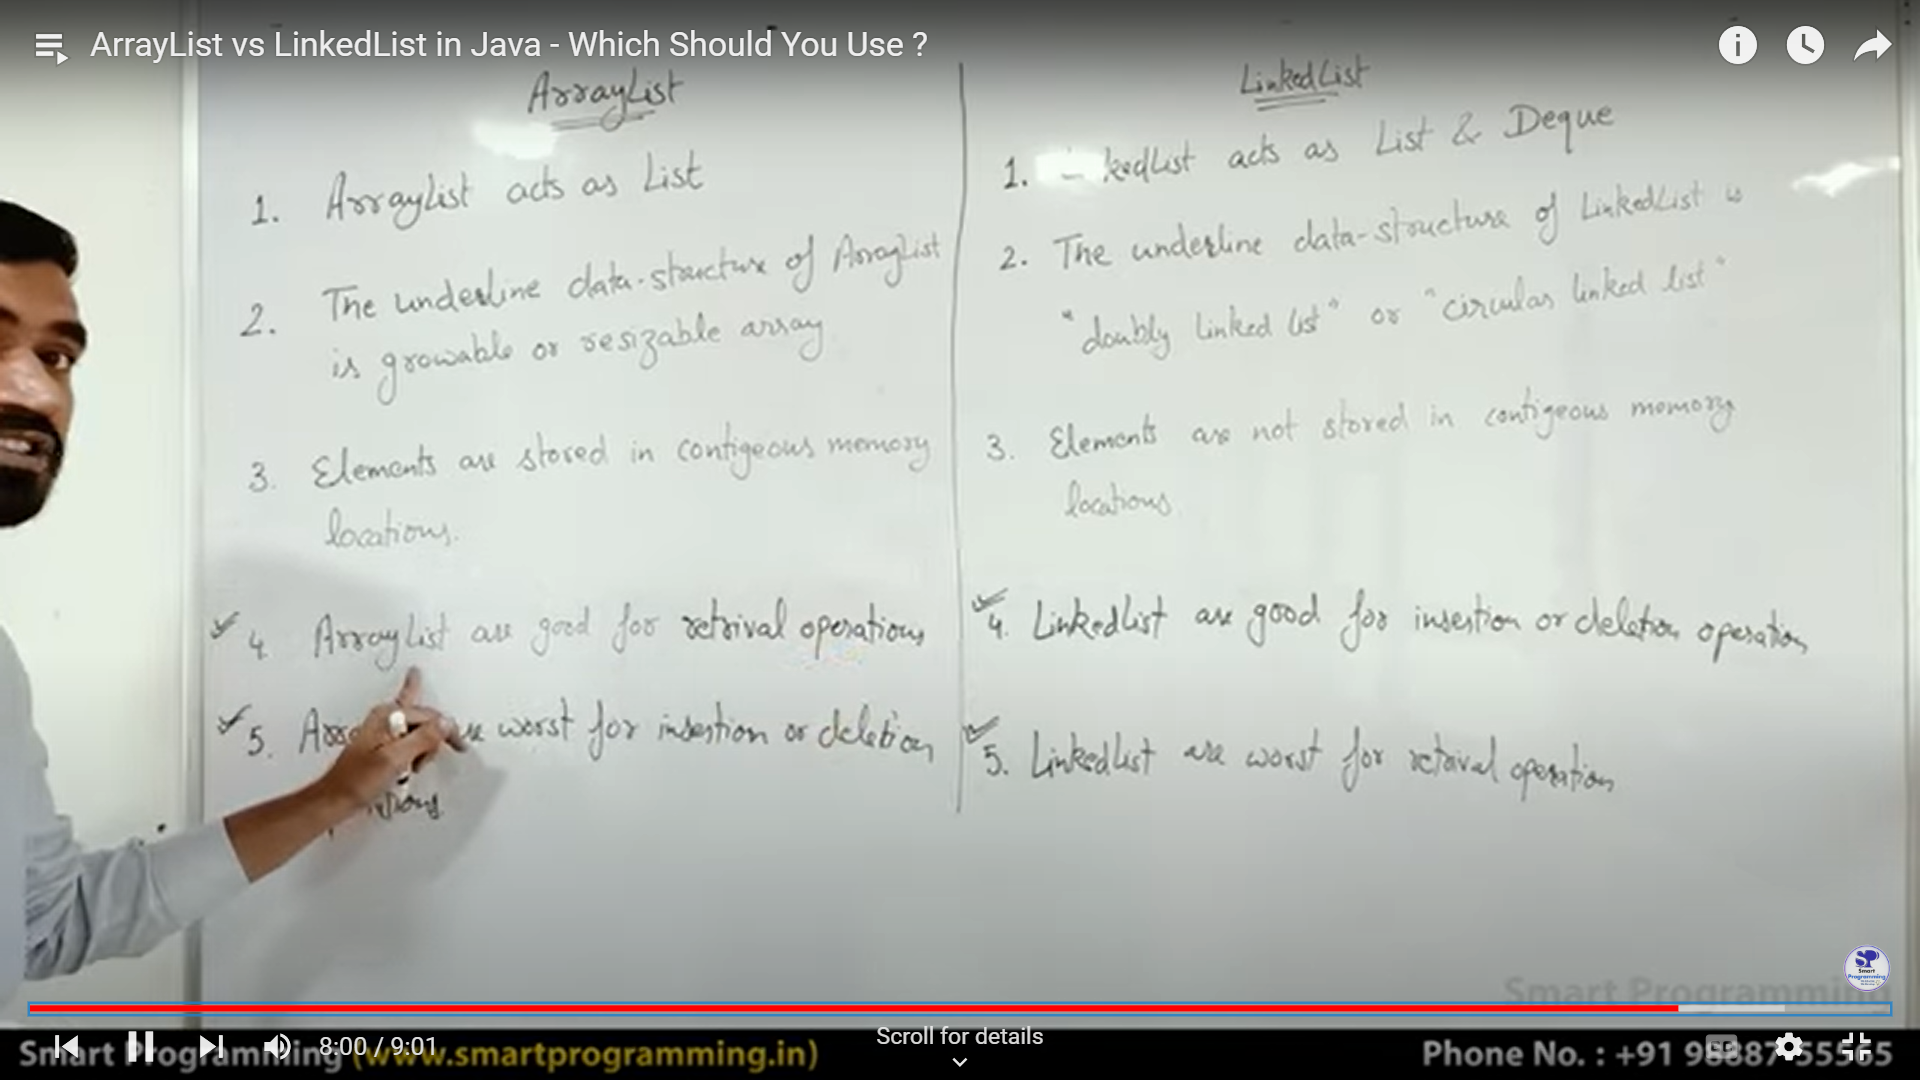 ArrayList vs LinkedList in Java - Which Should You Use ?
ArrayList
1. ArrayList acts as List
2. The underline data-structure of ArrayList
is growable or resizable array
3. Elements are stored in contigeous memory
locations.
4. ArrayList are good for retrival operations
5. worst for insertion or deletion
LinkedList
1. LinkedList acts as List & Deque
2. The underline data-structure of LinkedList is
"doubly linked list" or "circular linked list"
3. Elements are not stored in contigeous memory
locations
4. LinkedList are good for insertion or deletion operation
5. LinkedList are worst for retrival operation
SP
Smart
Programming
Smart Programming
8:00 / 9:01
Scroll for details
Smart Programming (www.smartprogramming.in)
Phone No. : +91 98887 55565